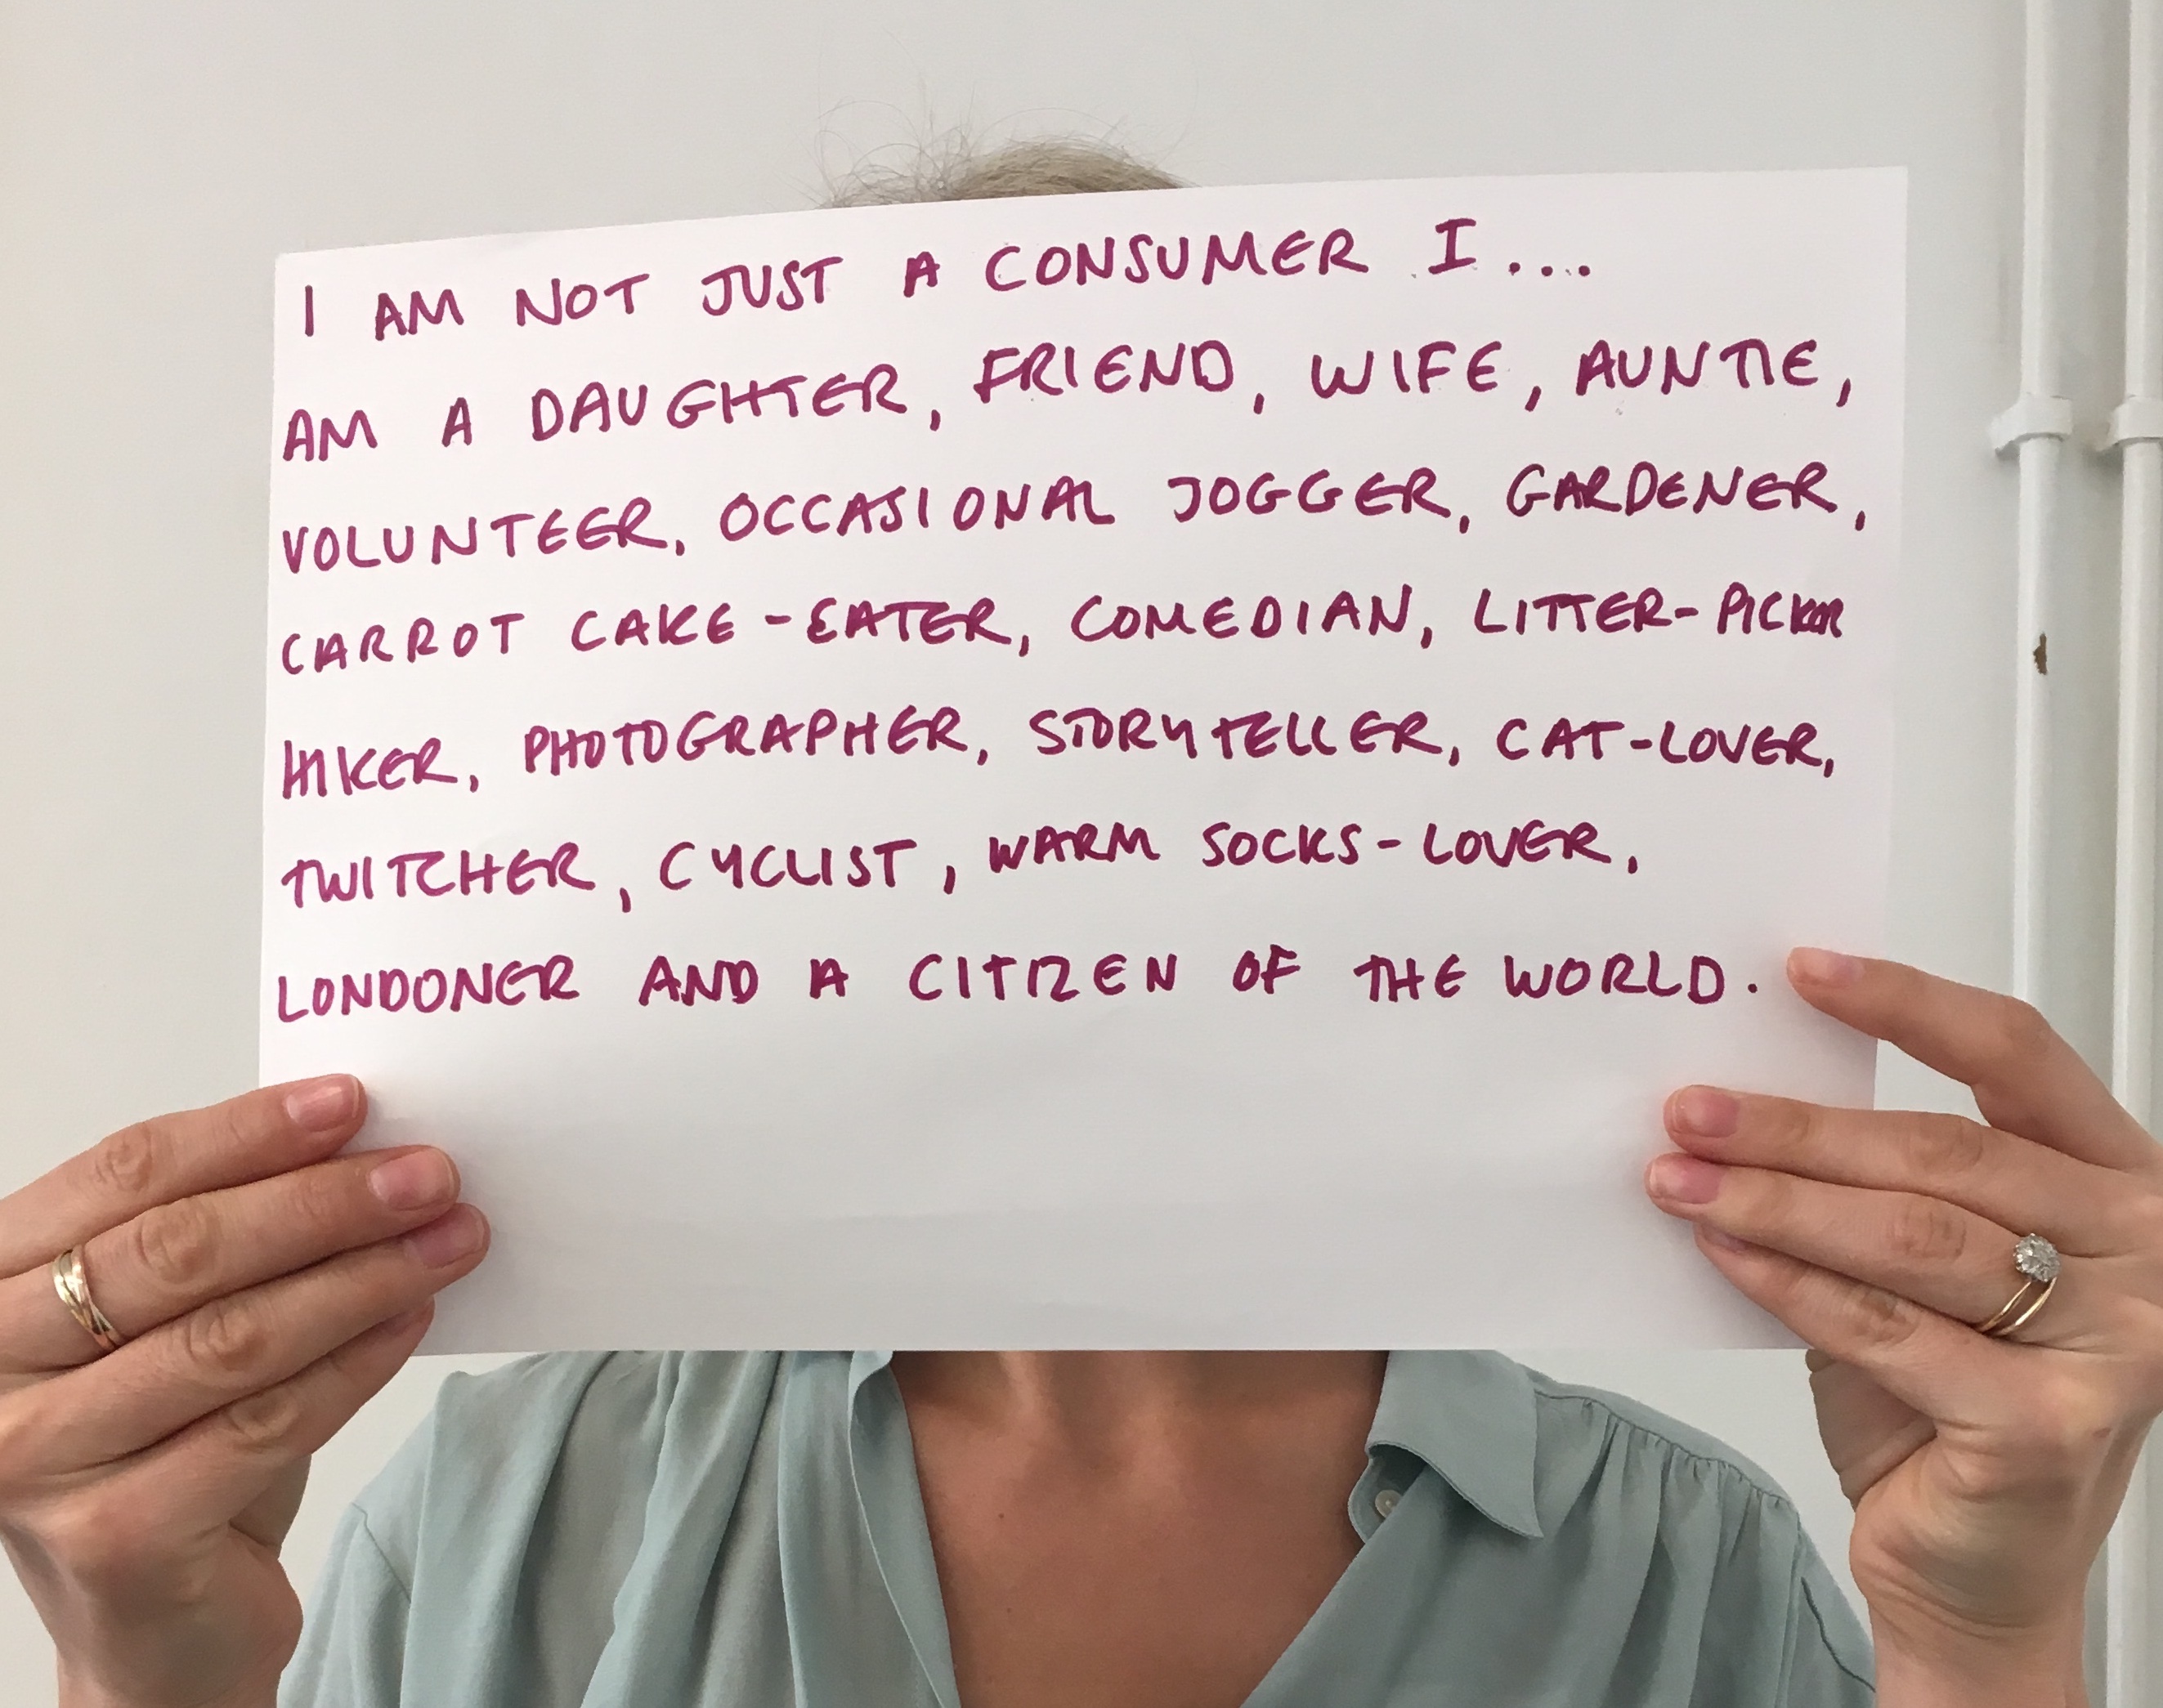 I AM NOT JUST A CONSUMER I....
AM A DAUGHTER, FRIEND, WIFE, AUNTIE,
VOLUNTEER, OCCASIONAL JOGGER, GARDENER,
CARROT CAKE-EATER, COMEDIAN, LITTER-PICKER
HIKER, PHOTOGRAPHER, STORYTELLER, CAT-LOVER,
TWITCHER, CYCLIST, WARM SOCKS-LOVER,
LONDONER AND A CITIZEN OF THE WORLD.